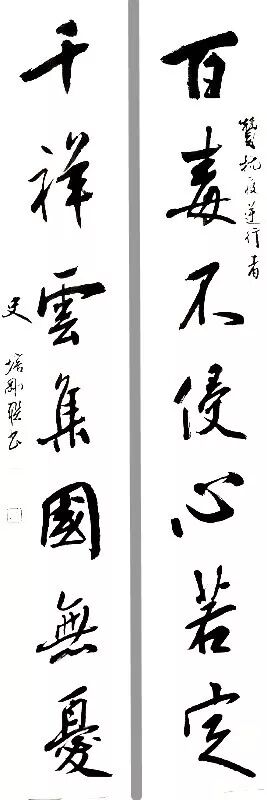 贊抗疫逆行者
百毒不侵心若定
千祥雲集國無憂
史
培剛聯书